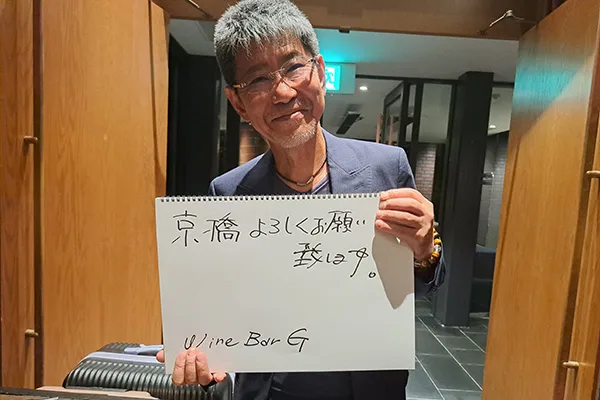 京橋よろしくお願い
致します。
Wine Bar G